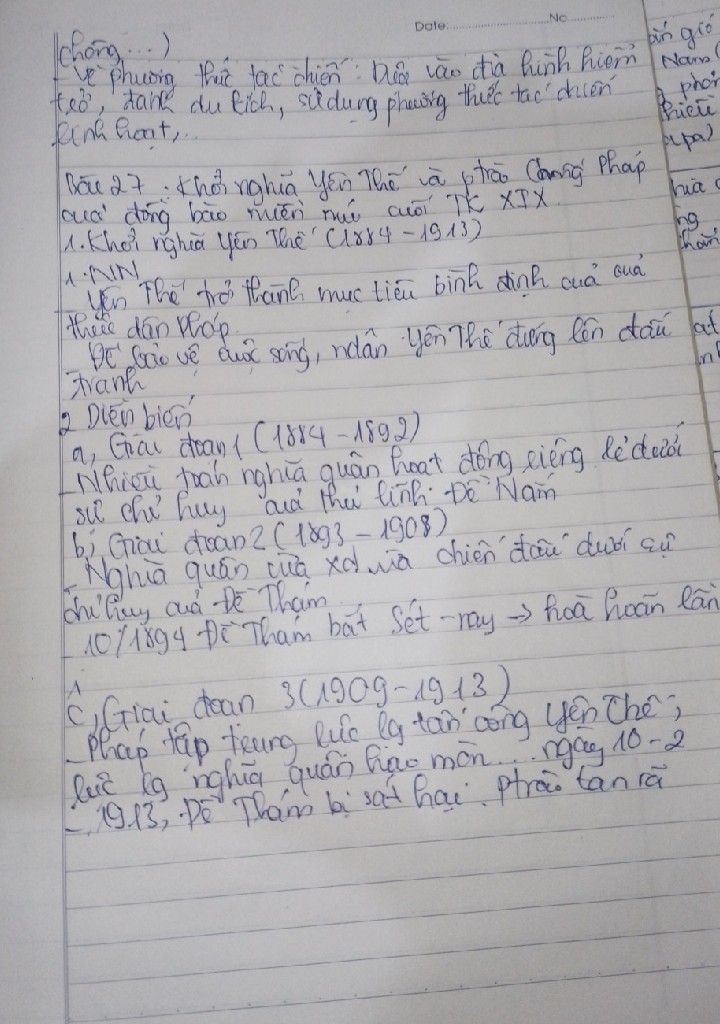 Date............No............
chông,...)
- Về phương thức tác chiến: Dựa vào địa hình hiểm
trở, đánh du kích, sử dụng phương thức tác chiến
linh hoạt,...
Bài 27. Khởi nghĩa Yên Thế và ptrào Chống Pháp
của đồng bào miền núi cuối TK XIX
1. Khởi nghĩa Yên Thế (1884-1913)
1. NN
Yên Thế trở thành mục tiêu bình định của của
thực dân Pháp
Để bảo vệ cuộc sống, ndân Yên Thế đứng lên đấu
tranh
2 Diễn biến
a, Giai đoạn 1 (1884-1892)
- Nhiều toán nghĩa quân hoạt động riêng lẻ dưới
sự chỉ huy của thủ lĩnh Đề Nắm
b, Giai đoạn 2 (1893-1908)
- Nghĩa quân vừa xd vừa chiến đấu dưới sự
chỉ huy của Đề Thám
10/1894 Đề Thám bắt Sét-nay → hoà hoãn lần
1
c, Giai đoạn 3 (1909-1913)
- Pháp tập trung lực lg tấn công Yên Thế,
lực lg nghĩa quân hao mòn... ngày 10-2
- 1913, Đề Thám bị sát hại. Ptrào tan rã